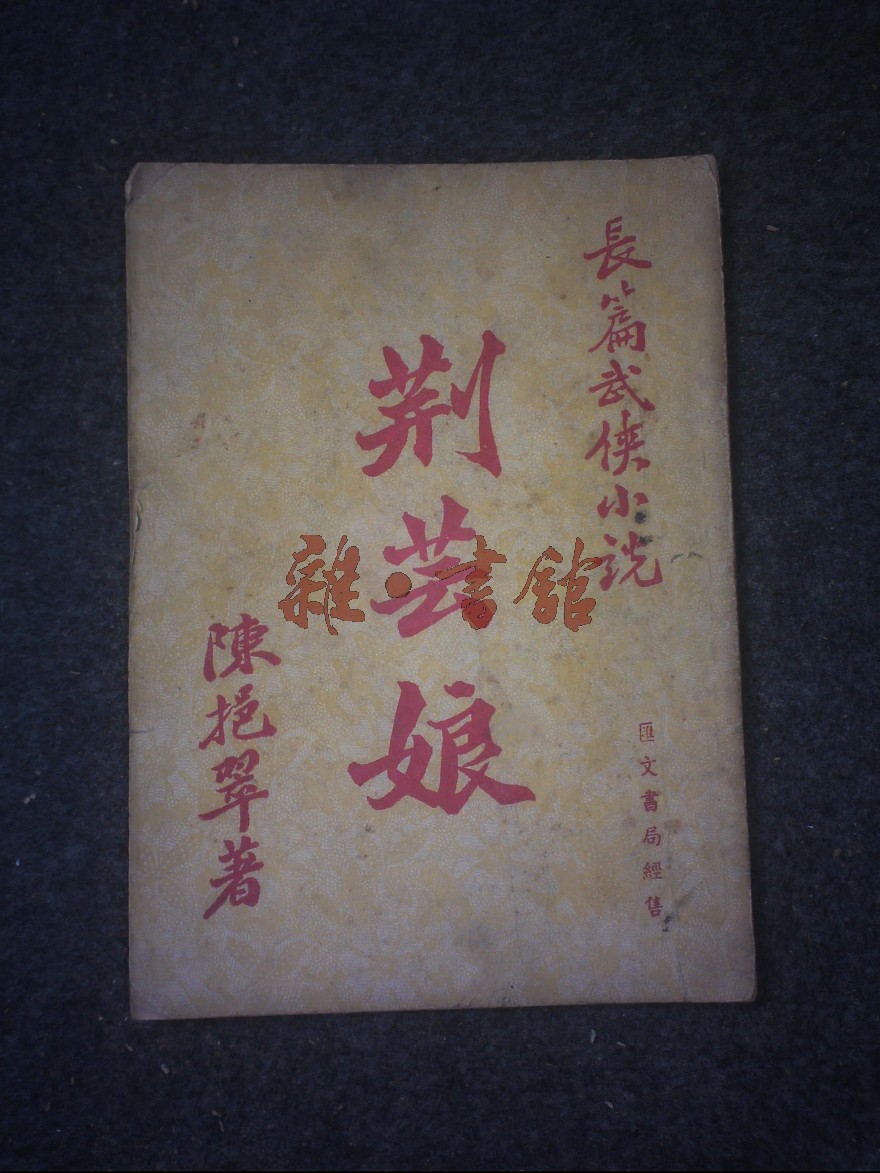 長篇武俠小說
匯文書局經售
荆芸娘
陳挹翠著
雜·書館